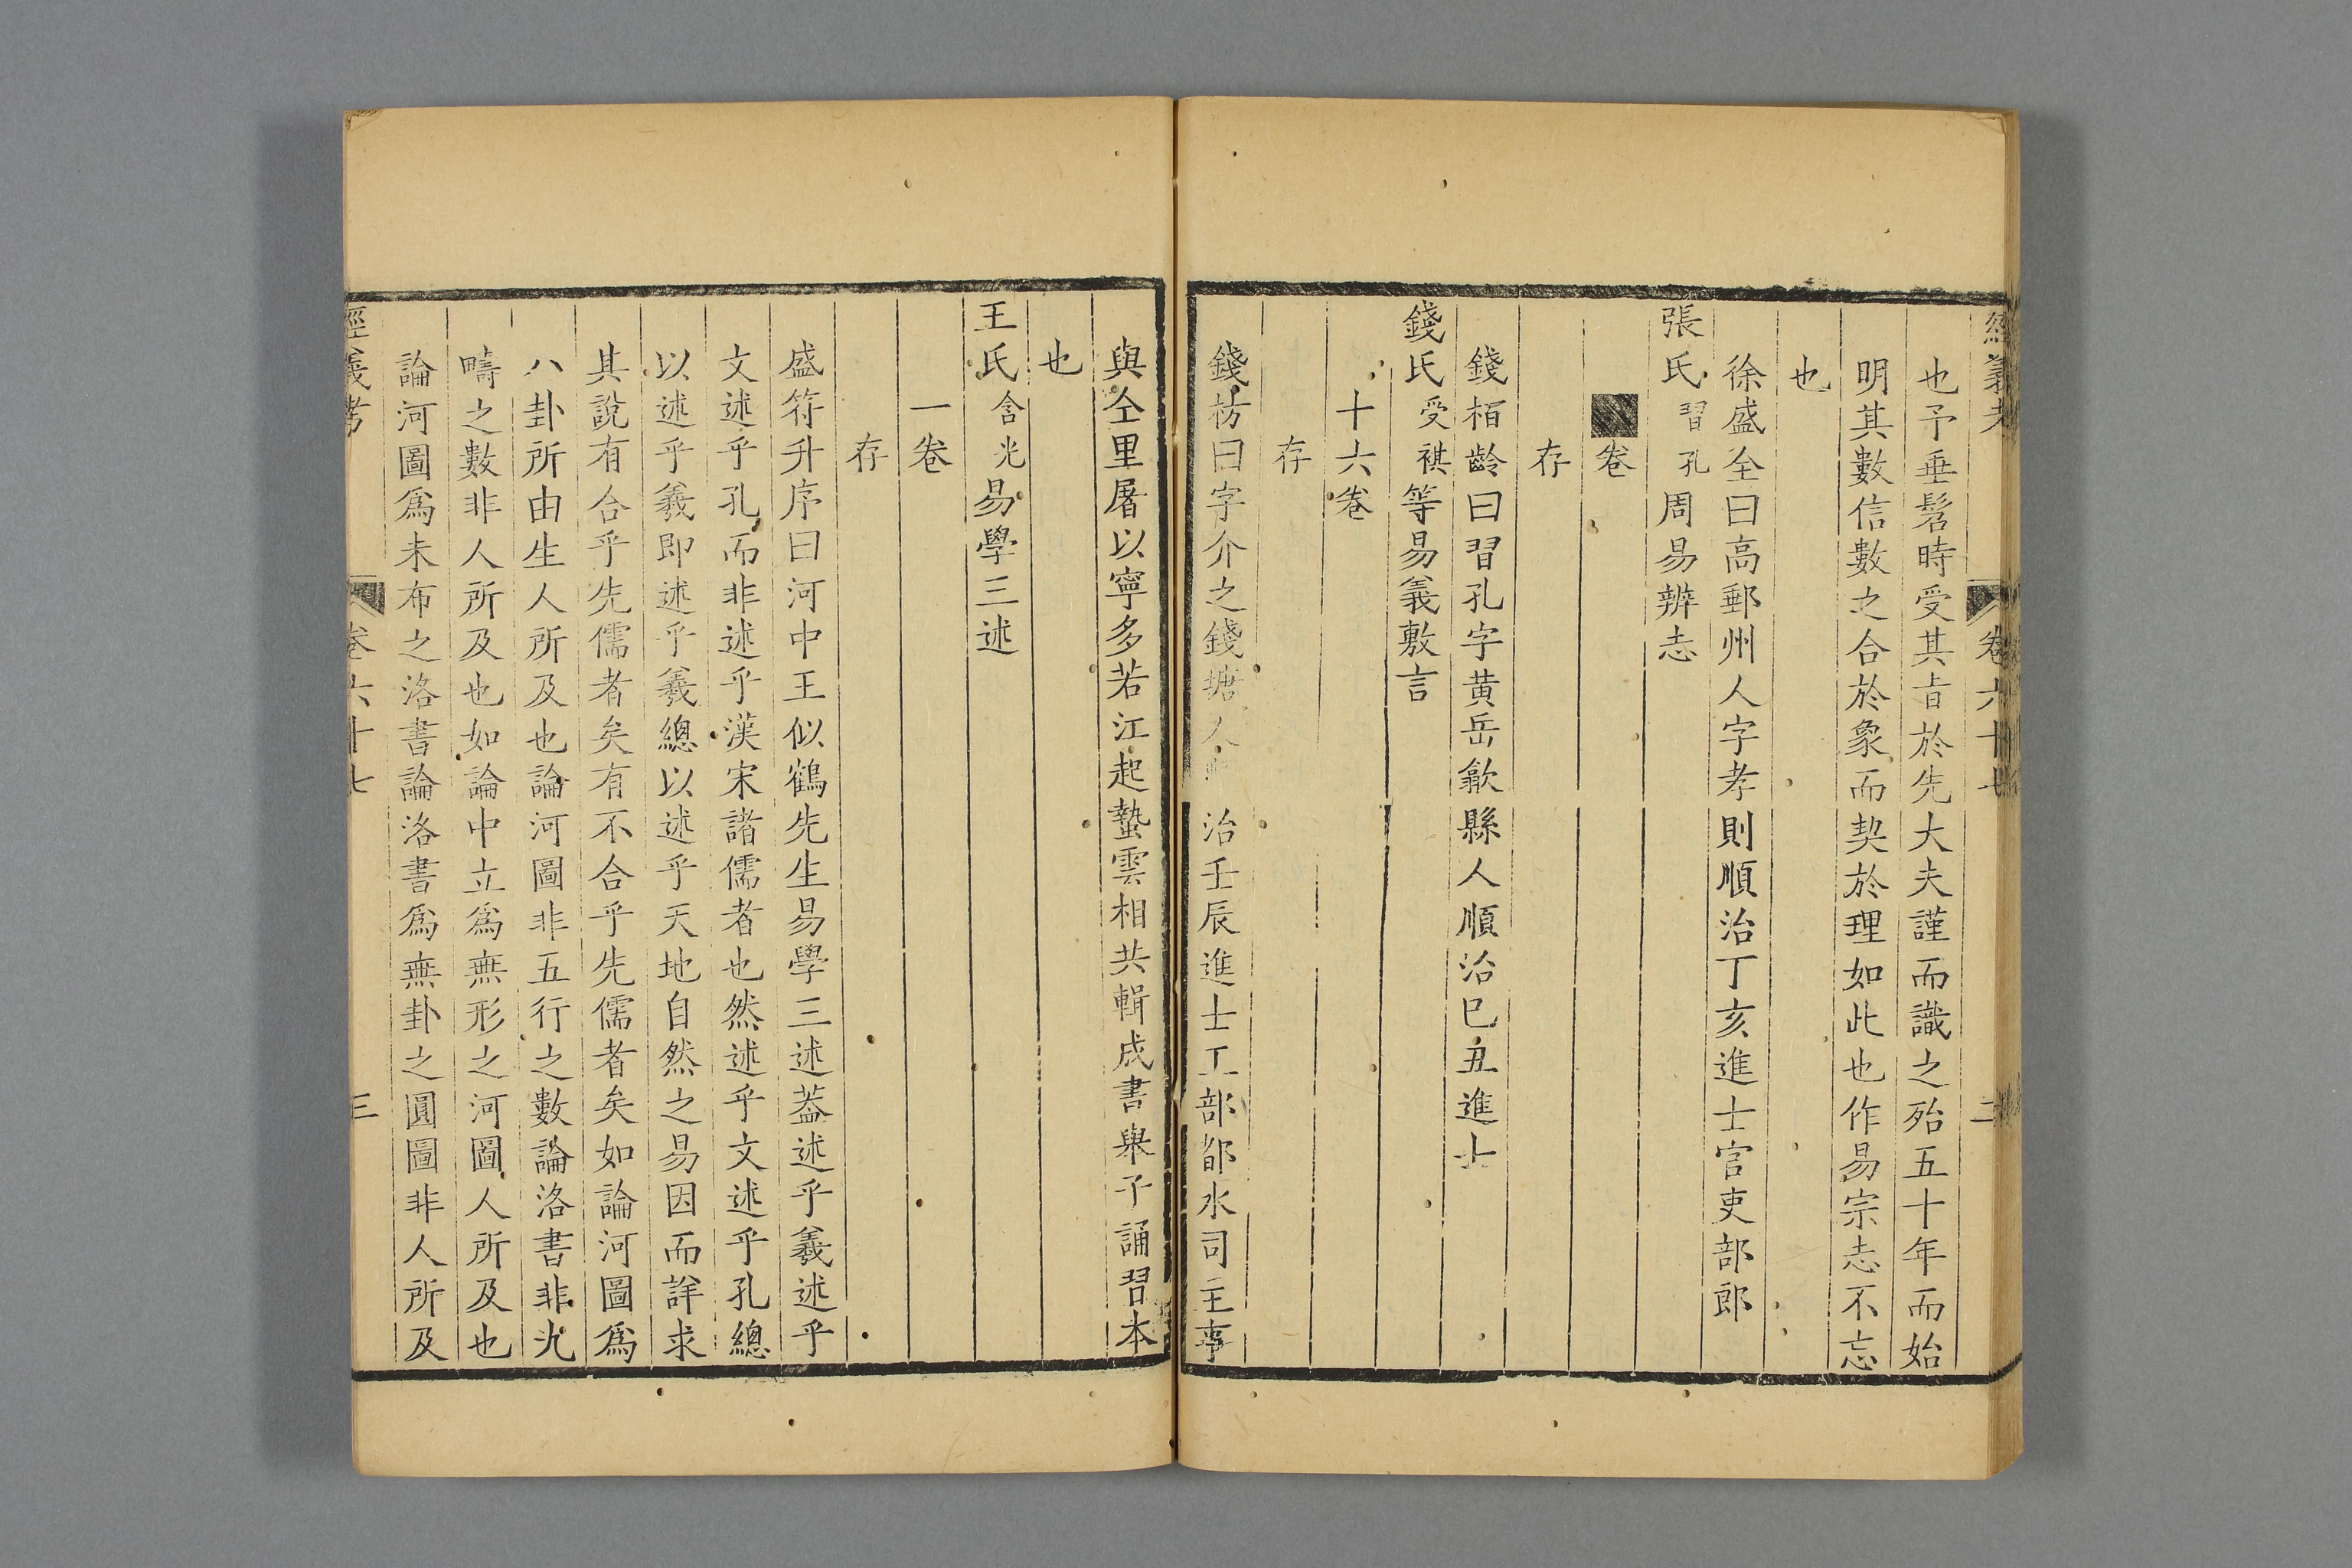 經義考 卷六十七 二
也予垂髫時受其㫖於先大夫謹而識之殆五十年而始
明其數信數之合於象而契於理如此也作易宗志不忘
也
徐盛全曰高郵州人字孝則順治丁亥進士官吏部郎
張氏習孔周易辨志
卷
存
錢栢齡曰習孔字黄岳歙縣人順治巳丑進士
錢氏受祺等易義敷言
十六卷
存
錢枋曰字介之錢塘人 治壬辰進士工部都水司主事
與仝里屠以寧多若江起蟄雲相共輯成書舉子誦習本
也
王氏含光易學三述
一卷
存
盛符升序曰河中王似鶴先生易學三述葢述乎羲述乎
文述乎孔而非述乎漢宋諸儒者也然述乎文述乎孔總
以述乎羲即述乎羲總以述乎天地自然之易因而詳求
其說有合乎先儒者矣有不合乎先儒者矣如論河圖爲
八卦所由生人所及也論河圖非五行之數論洛書非九
疇之數非人所及也如論中立爲無形之河圖人所及也
論河圖爲未布之洛書論洛書爲無卦之圓圖非人所及
經義考 卷六十七 三